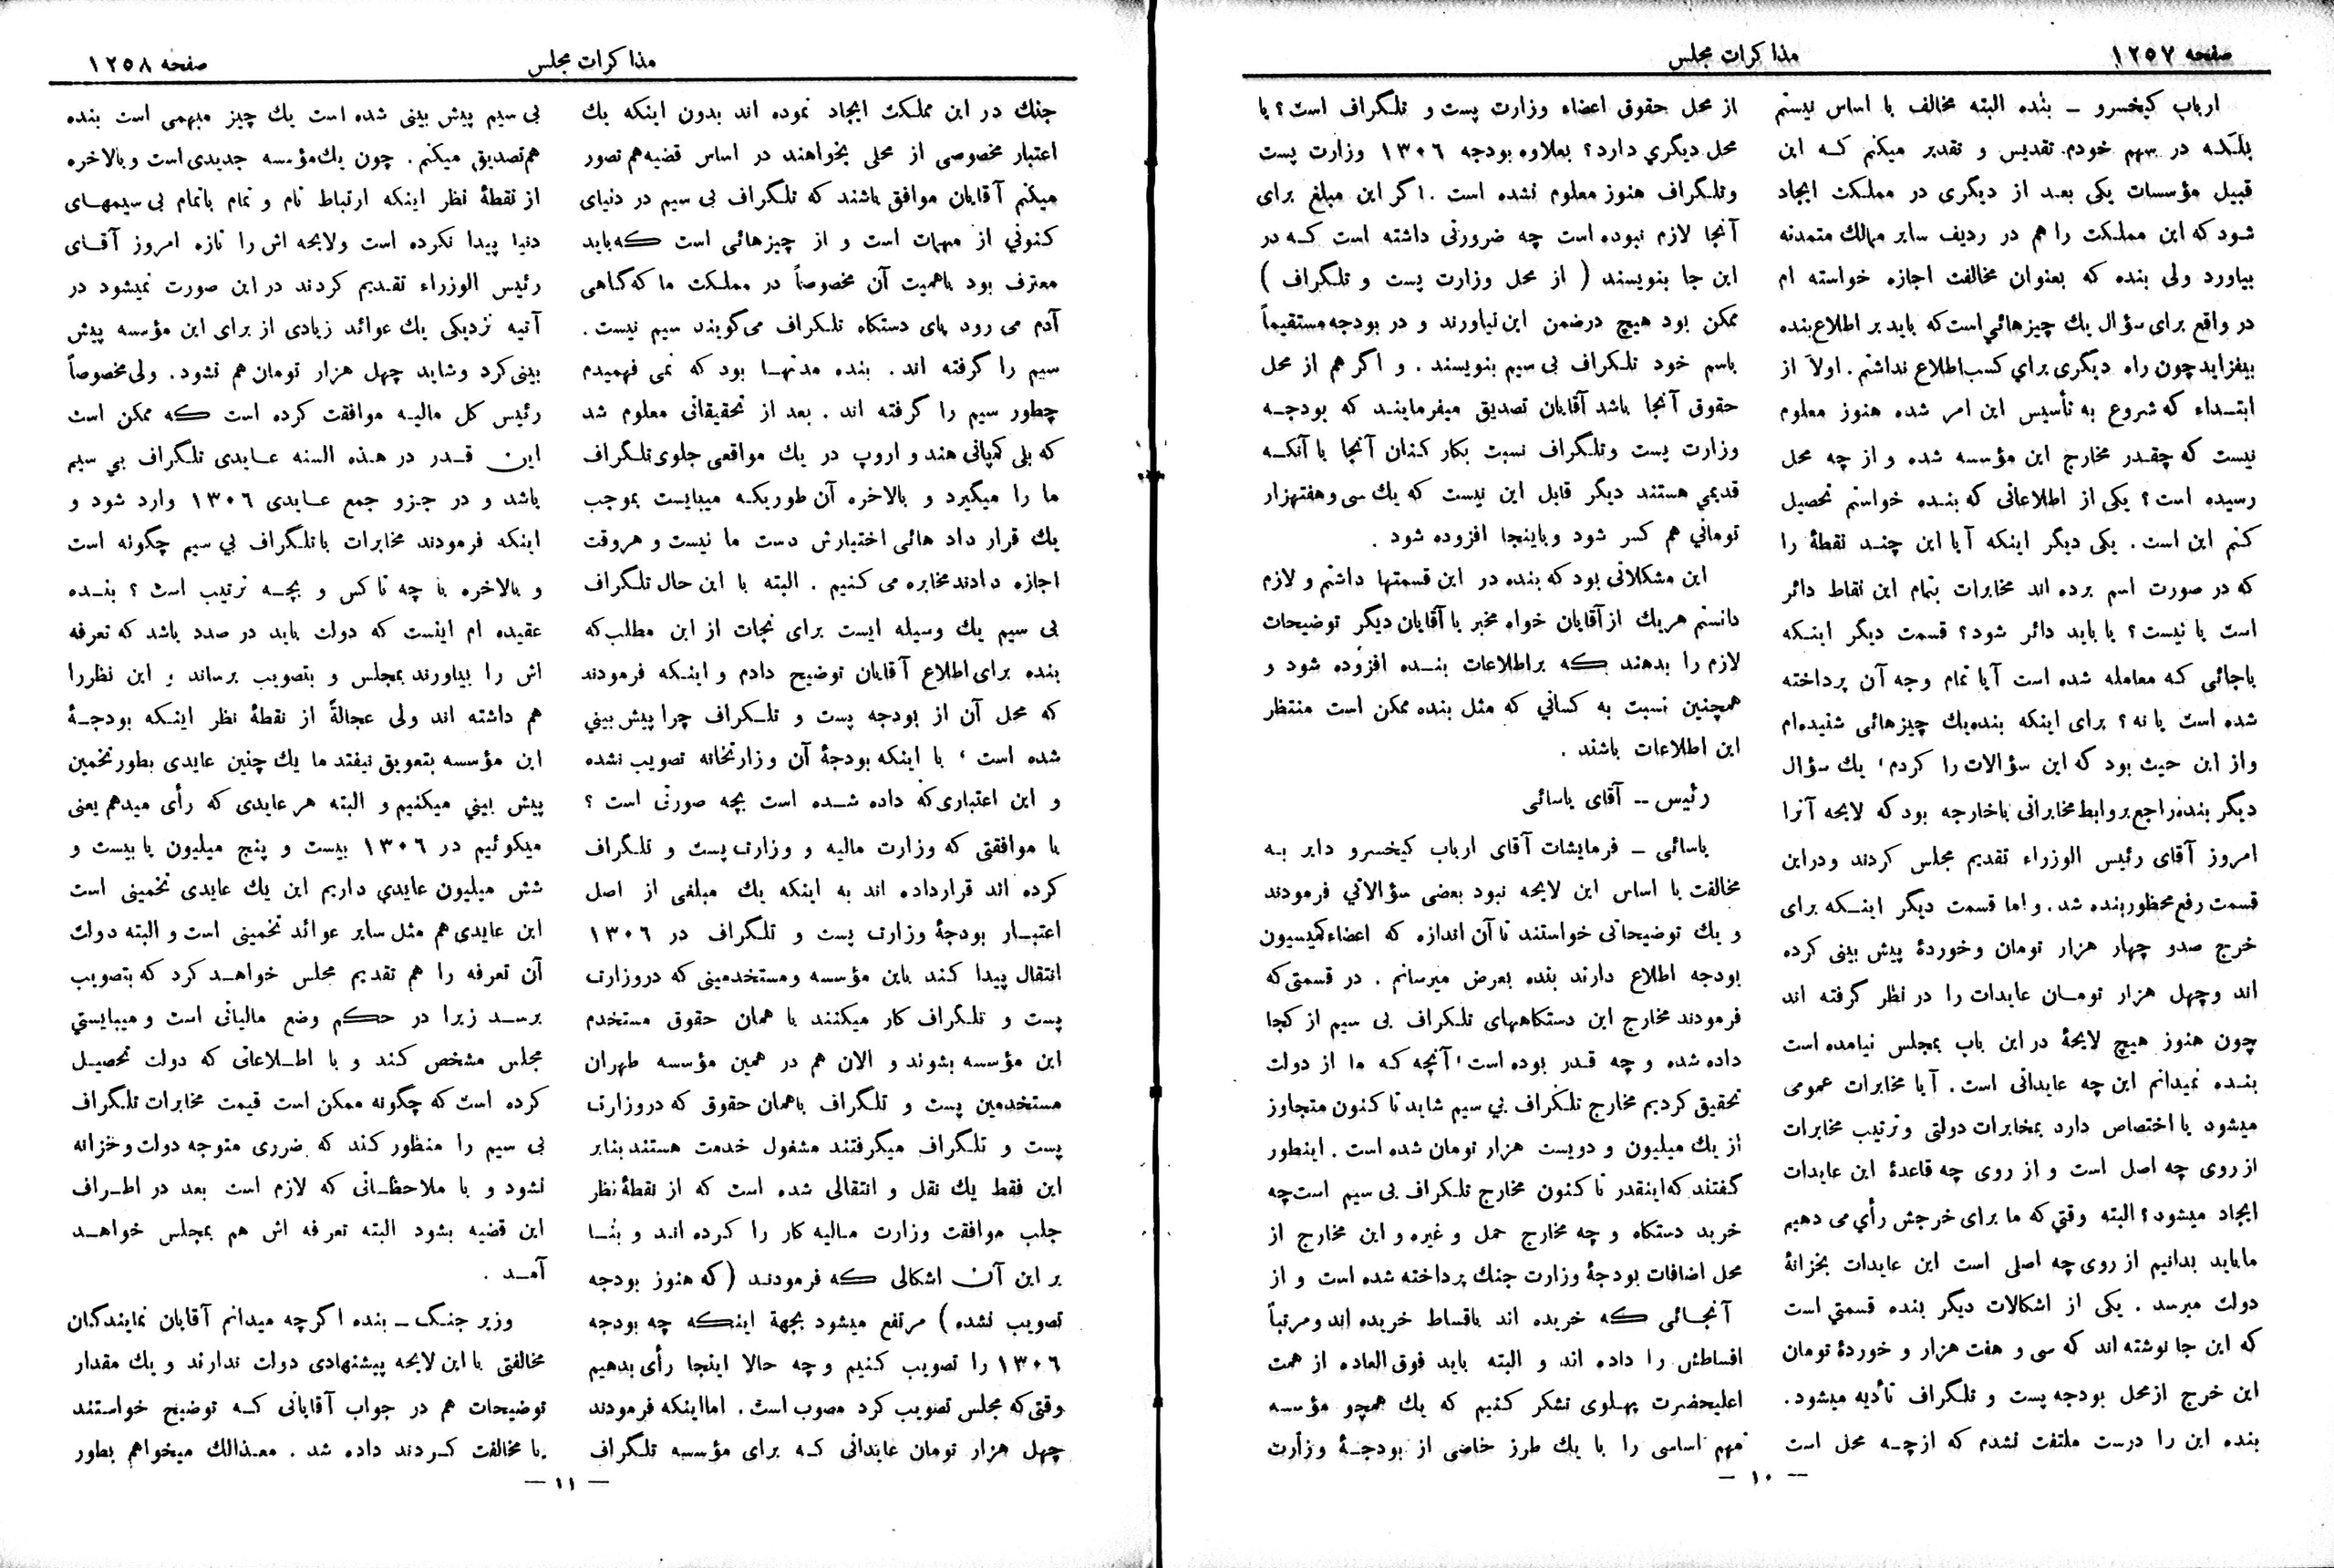 صفحه ۱۲۵۷
مذاکرات مجلس
ارباب کیخسرو ـ بنده البته مخالف با اساس نیستم
بلکه در سهم خودم تقدیس و تقدیر میکنم که این
قبیل مؤسسات یکی بعد از دیگری در مملکت ایجاد
شود که این مملکت را هم در ردیف سایر ممالك متمدنه
بیاورد ولی بنده که بعنوان مخالفت اجازه خواسته ام
در واقع برای سؤال یك چیزهائی است که باید بر اطلاع بنده
بیفزاید چون راه دیگری برای کسب اطلاع نداشتم . اولا از
ابتداء که شروع به تأسیس این امر شده هنوز معلوم
نیست که چقدر مخارج این مؤسسه شده و از چه محل
رسیده است ؟ یکی از اطلاعاتی که بنده خواستم تحصیل
کنم این است . یکی دیگر اینکه آیا این چند نقطهٔ را
که در صورت اسم برده اند مخابرات بتمام این نقاط دائر
است یا نیست ؟ یا باید دائر شود ؟ قسمت دیگر اینکه
باجائی که معامله شده است آیا تمام وجه آن پرداخته
شده است یا نه ؟ برای اینکه بنده یك چیزهائی شنیده‌ام
و از این حیث بود که این سؤالات را کردم ، یك سؤال
دیگر بنده راجع بروابط مخابراتی باخارجه بود که لایحه آنرا
امروز آقای رئیس الوزراء تقدیم مجلس کردند و دراین
قسمت رفع محظور بنده شد . و اما قسمت دیگر اینکه برای
خرج صدو چهار هزار تومان و خوردهٔ پیش بینی کرده
اند و چهل هزار تومان عایدات را در نظر گرفته اند
چون هنوز هیچ لایحهٔ در این باب بمجلس نیامده است
بنده نمیدانم این چه عایداتی است . آیا مخابرات عمومی
میشود یا اختصاص دارد بمخابرات دولتی و ترتیب مخابرات
از روی چه اصل است و از روی چه قاعدهٔ این عایدات
ایجاد میشود ؟ البته وقتی که ما برای خرجش رأی می دهیم
ماباید بدانیم از روی چه اصلی است این عایدات بخزانهٔ
دولت میرسد . یکی از اشکالات دیگر بنده قسمتی است
که این جا نوشته اند که سی و هفت هزار و خوردهٔ تومان
این خرج از محل بودجه پست و تلگراف تأدیه میشود .
بنده این را درست ملتفت نشدم که از چه محل است
از محل حقوق اعضاء وزارت پست و تلگراف است ؟ یا
محل دیگری دارد ؟ بعلاوه بودجه ۱۳۰۶ وزارت پست
و تلگراف هنوز معلوم نشده است . اگر این مبلغ برای
آنجا لازم نبوده است چه ضرورتی داشته است که در
این جا بنویسند ( از محل وزارت پست و تلگراف )
ممکن بود هیچ درضمن این نیاورند و در بودجه مستقیماً
باسم خود تلگراف بی سیم بنویسند . و اگر هم از محل
حقوق آنجا باشد آقایان تصدیق میفرمایند که بودجه
وزارت پست و تلگراف نسبت بکار کنان آنجا با آنکه
قدیمی هستند دیگر قابل این نیست که یك سی و هفتهزار
تومانی هم کسر شود و باینجا افزوده شود .
این مشکلاتی بود که بنده در این قسمتها داشتم و لازم
دانستم هریك از آقایان خواه مخبر یا آقایان دیگر توضیحات
لازم را بدهند که بر اطلاعات بنده افزوده شود و
همچنین نسبت به کسانی که مثل بنده ممکن است منتظر
این اطلاعات باشند .
رئیس -- آقای یاسائی
یاسائی ـ فرمایشات آقای ارباب کیخسرو دایر به
مخالفت با اساس این لایحه نبود بعضی سؤالاتی فرمودند
و یك توضیحاتی خواستند تا آن اندازه که اعضاء کمیسیون
بودجه اطلاع دارند بنده بعرض میرسانم . در قسمتی که
فرمودند مخارج این دستگاههای تلگراف بی سیم از کجا
داده شده و چه قدر بوده است ، آنچه که ما از دولت
تحقیق کردیم مخارج تلگراف بی سیم شاید تا کنون متجاوز
از یك میلیون و دویست هزار تومان شده است . اینطور
گفتند که اینقدر تا کنون مخارج تلگراف بی سیم است چه
خرید دستگاه و چه مخارج حمل و غیره و این مخارج از
محل اضافات بودجهٔ وزارت جنك پرداخته شده است و از
آنجائی که خریده اند باقساط خریده اند و مرتباً
اقساطش را داده اند و البته باید فوق العاده از همت
اعلیحضرت پهلوی تشکر کنیم که یك همچو مؤسسه
مهم اساسی را با یك طرز خاصی از بودجهٔ وزارت
— ۱۰ —
مذاکرات مجلس
صفحه ۱۲۵۸
جنك در این مملکت ایجاد نموده اند بدون اینکه یك
اعتبار مخصوصی از محلی بخواهند در اساس قضیه هم تصور
میکنم آقایان موافق باشند که تلگراف بی سیم در دنیای
کنونی از مهمات است و از چیزهائی است که باید
معترف بود باهمیت آن مخصوصاً در مملکت ما که گاهی
آدم می رود پای دستگاه تلگراف می گویند سیم نیست .
سیم را گرفته اند . بنده مدتها بود که نمی فهمیدم
چطور سیم را گرفته اند . بعد از تحقیقاتی معلوم شد
که بلی کمپانی هند و اروپ در یك مواقعی جلوی تلگراف
ما را میگیرد و بالاخره آن طوریکه میبایست بموجب
یك قرار داد هائی اختیارش دست ما نیست و هروقت
اجازه دادند مخابره می کنیم . البته با این حال تلگراف
بی سیم یك وسیله ایست برای نجات از این مطلب که
بنده برای اطلاع آقایان توضیح دادم و اینکه فرمودند
که محل آن از بودجه پست و تلگراف چرا پیش بینی
شده است ، با اینکه بودجهٔ آن وزارتخانه تصویب نشده
و این اعتباری که داده شده است بچه صورتی است ؟
با موافقتی که وزارت مالیه و وزارت پست و تلگراف
کرده اند قرارداده اند به اینکه یك مبلغی از اصل
اعتبار بودجهٔ وزارت پست و تلگراف در ۱۳۰۶
انتقال پیدا کند باین مؤسسه و مستخدمینی که در وزارت
پست و تلگراف کار میکنند با همان حقوق مستخدم
این مؤسسه بشوند و الان هم در همین مؤسسه طهران
مستخدمین پست و تلگراف باهمان حقوق که در وزارت
پست و تلگراف میگرفتند مشغول خدمت هستند بنابر
این فقط یك نقل و انتقالی شده است که از نقطهٔ نظر
جلب موافقت وزارت مالیه کار را کرده اند و بنا
بر این آن اشکالی که فرمودند (که هنوز بودجه
تصویب نشده) مرتفع میشود بجهة اینکه چه بودجه
۱۳۰۶ را تصویب کنیم و چه حالا اینجا رأی بدهیم
وقتی که مجلس تصویب کرد مصوب است . اما اینکه فرمودند
چهل هزار تومان عایداتی که برای مؤسسه تلگراف
بی سیم پیش بینی شده است یك چیز مبهمی است بنده
هم تصدیق میکنم . چون یك مؤسسه جدیدی است و بالاخره
از نقطهٔ نظر اینکه ارتباط تام و تمام باتمام بی سیمهای
دنیا پیدا نکرده است و لایحه اش را تازه امروز آقای
رئیس الوزراء تقدیم کردند در این صورت نمیشود در
آتیه نزدیکی یك عوائد زیادی از برای این مؤسسه پیش
بینی کرد و شاید چهل هزار تومان هم نشود . ولی مخصوصاً
رئیس کل مالیه موافقت کرده است که ممکن است
این قدر در هذه السنه عایدی تلگراف بی سیم
باشد و در جزو جمع عایدی ۱۳۰۶ وارد شود و
اینکه فرمودند مخابرات باتلگراف بی سیم چگونه است
و بالاخره با چه تاکس و بچه ترتیب است ؟ بنده
عقیده ام اینست که دولت باید در صدد باشد که تعرفه
اش را بیاورند بمجلس و بتصویب برساند و این نظر را
هم داشته اند ولی عجالةً از نقطهٔ نظر اینکه بودجهٔ
این مؤسسه بتعویق نیفتد ما یك چنین عایدی بطور تخمین
پیش بینی میکنیم و البته هر عایدی که رأی میدهم یعنی
میگوئیم در ۱۳۰۶ بیست و پنج میلیون یا بیست و
شش میلیون عایدی داریم این یك عایدی تخمینی است
این عایدی هم مثل سایر عوائد تخمینی است و البته دولت
آن تعرفه را هم تقدیم مجلس خواهد کرد که بتصویب
برسد زیرا در حکم وضع مالیاتی است و میبایستی
مجلس مشخص کند و با اطلاعاتی که دولت تحصیل
کرده است که چگونه ممکن است قیمت مخابرات تلگراف
بی سیم را منظور کند که ضرری متوجه دولت و خزانه
نشود و با ملاحظاتی که لازم است بعد در اطراف
این قضیه بشود البته تعرفه اش هم بمجلس خواهد
آمد .
وزیر جنگ ـ بنده اگرچه میدانم آقایان نمایندگان
مخالفتی با این لایحه پیشنهادی دولت ندارند و یك مقدار
توضیحات هم در جواب آقایانی که توضیح خواستند
یا مخالفت کردند داده شد . معذالك میخواهم بطور
— ۱۱ —